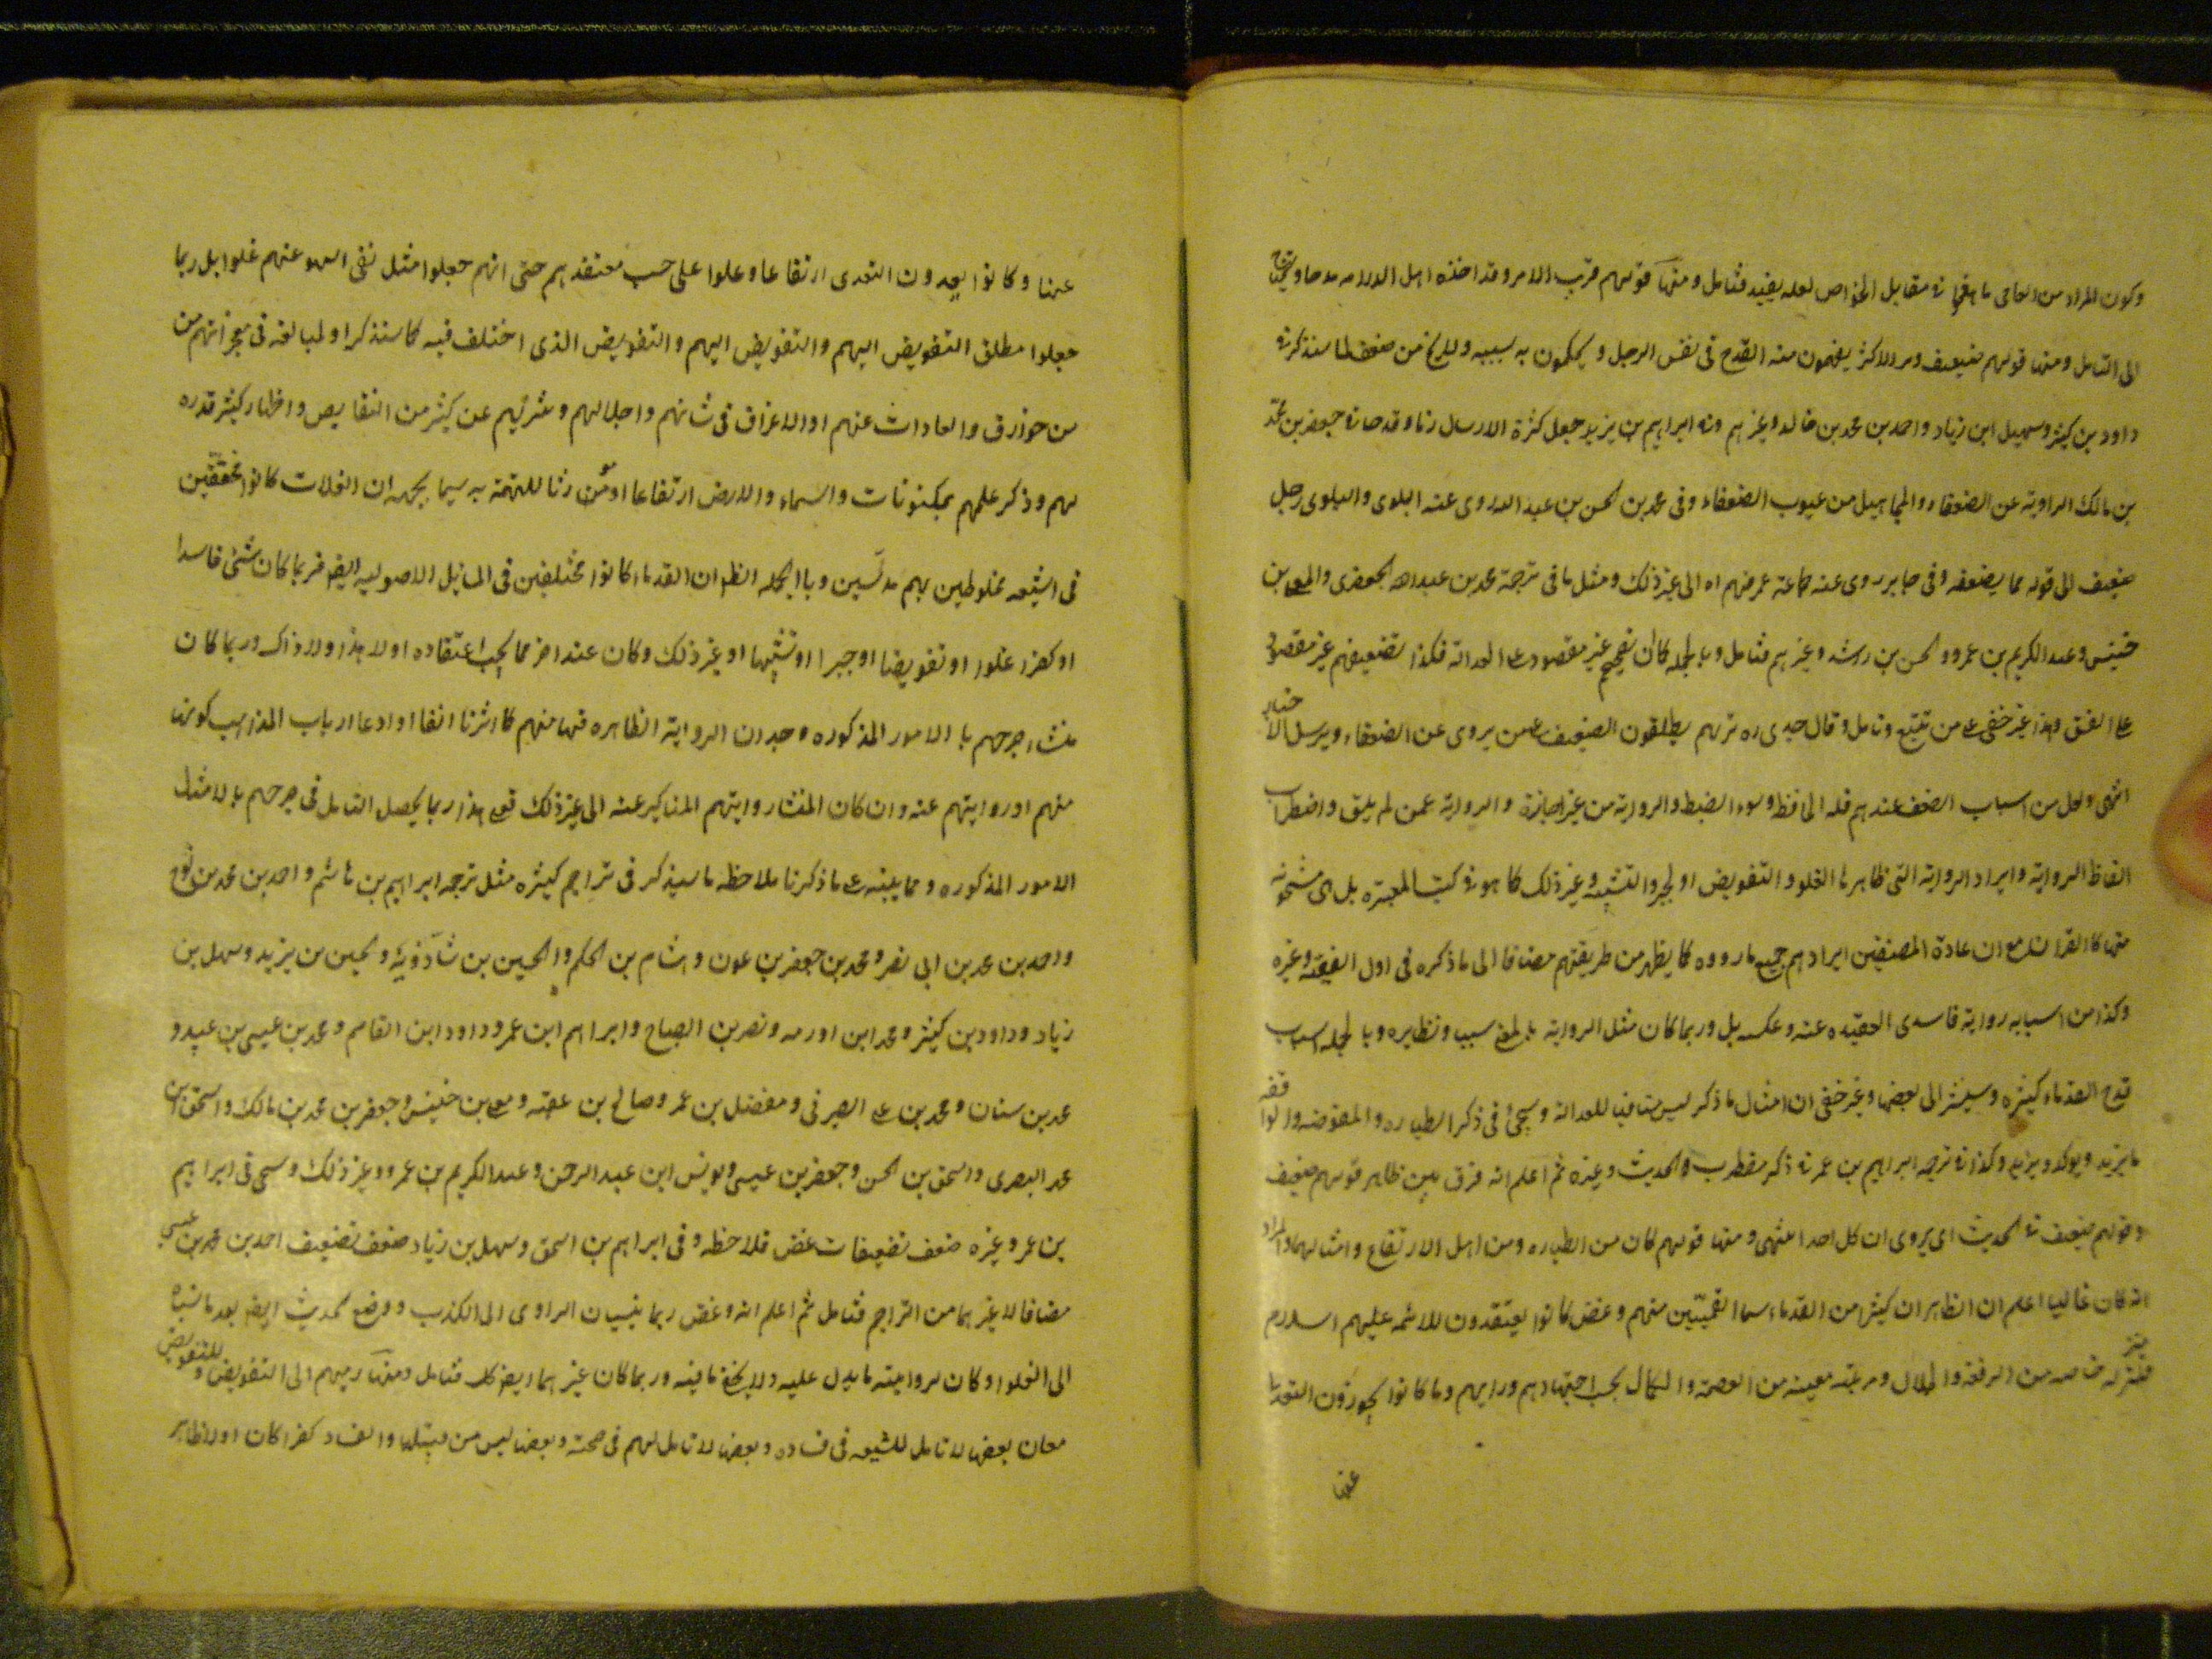 وكون المراد من العامى ما هو فى مقابل الخواص لعله بعيد فتامل ومنها قولهم قريب الامر وقد اخذه اهل الدراية مدحا ويحتاج
الى التامل ومنها قولهم ضعيف ونرى الاكثر يفهمون منه القدح فى نفس الرجل ويحكمون به بسببه ولا يخ من ضعف لما سنذكر فى
داود بن كثير وسهيل ابن زياد واحمد بن محمد بن خالد وغيرهم وفى ابراهيم بن يزيد جعل كثرة الارسال ذما وقدحا فى جعفر بن محمد
بن مالك الرواية عن الضعفاء والمجاهيل من عيوب الضعفاء وفى محمد بن الحسن بن عبد الله روى عنه البلوى والبلوى رجل
ضعيف الى قوله مما يضعفه وفى جابر روى عنه جماعة غمز فيهم اه الى غير ذلك ومثل ما فى ترجمة محمد بن عبدالله الجعفرى والمعلى بن
خنيس وعبد الكريم بن عمرو والحسن بن راشد وغيرهم فتامل وبالجملة كما ان تصحيحهم غير مقصور على العدالة فكذا تضعيفهم غير مقصور
على الفسق وهذا غير خفى على من تتبع وتامل وقال جدى ره تريهم يطلقون الضعيف على من يروى عن الضعفاء ويرسل الاخبار
انتهى ولعل من اسباب الضعف عندهم قلة الحافظة وسوء الضبط والرواية من غير اجازة والرواية عمن لم يلق واضطراب
الفاظ الرواية وايراد الرواية التى ظاهرها الغلو والتفويض او الجبر والتشبيه وغير ذلك كما هو فى كتبنا المعتبرة بل هى مشحونة
منها كالقران مع ان عادة المصنفين ايرادهم جميع ما رووه كما يظهر من طريقتهم مضافا الى ما ذكره فى اول الفقيه وغيره
وكذا من اسبابه رواية فاسدى العقيدة عنه وعكسه بل وربما كان مثل الرواية بالمعنى سببا ونظيره وبالجملة اسباب
قدح القدماء كثيرة وسيشير الى بعضها وغير خفى ان امثال ما ذكر ليس منافيا للعدالة وسيجئ فى ذكر الطيارة والمفوضة والواقفة
ما يزيد ويوكد ويزيد وكذا فى ترجمة ابراهيم بن عمر فى ذكر مضطرب الحديث وغيره ثم اعلم انه فرق بين ظاهر قولهم ضعيف
وقولهم ضعيف فى الحديث اى يروى ان كل احد انتهى ومنها قولهم كان من الطيارة ومن اهل الارتفاع وامثالهما والمراد
انه كان غاليا اعلم ان الظاهر ان كثيرا من القدماء سيما القميين منهم وغض كانوا يعتقدون للائمة عليهم السلام
منزلة خاصة من الرفعة والجلال ومرتبة معينة من العصمة والكمال بحسب اجتهادهم ورايهم وما كانوا يجوزون التعدى
عنها
عنها وكانوا يعدون التعدى ارتفاعا وغلوا على حسب معتقدهم حتى انهم جعلوا مثل نفى السهو عنهم غلوا بل ربما
جعلوا مطلق التفويض اليهم والتفويض اليهم والتفويض الذى اختلف فيه كما سنذكر او المبالغة فى معجزاتهم من
من خوارق والعادات عنهم او الاغراق فى شانهم واجلالهم وتنزيههم عن كثير من النقايص واظهار كثير قدرة
لهم وذكر علمهم بمكنونات والسماء والارض ارتفاعا او مورثا للتهمة به سيما بجهة ان الغلات كانوا مختفين
فى الشيعة مخلوطين بهم مدلسين وبالجمله الظ ان القدماء كانوا مختلفين فى المسايل الاصولية ايضا فربما كان شئ فاسدا
او كفرا غلوا او تفويضا او جبرا او تشبيها او غير ذلك وكان عند اخر مما يجب اعتقاده اولا هذا ولا ذاك وربما كان
منشاء جرحهم با الامور المذكوره وجدان الرواية الظاهرة فيها منهم كما اشرنا انفا او ادعا ارباب المذاهب كونه
منهم او روايتهم عنه وان كان المنشا روايتهم المناكير عنه الى غير ذلك فعلى هذا ربما يحصل التامل فى جرحهم بامثال
الامور المذكوره ومما ينبه على ما ذكرنا ملاحظه ما سيذكر فى تراجم كثيره مثل ترجمه ابراهيم بن هاشم واحمد بن محمد بن نوح
واحمد بن محمد بن ابى نصر ومحمد بن جعفر بن عون وهشام بن الحكم والحسين بن شاذويه والحسين بن يزيد وسهل بن
زياد وداود بن كثير ومحمد ابن اورمه ونصر بن الصباح وابراهيم ابن عمر وداود ابن القاسم ومحمد بن عيسى بن عبيد و
محمد بن سنان ومحمد بن على الصيرفى ومفضل بن عمر وصالح بن عقبه ومعلى بن خنيس وجعفر بن محمد بن مالك واسحق ابن
محمد البصرى واسحق بن الحسن وجعفر بن عيسى ويونس ابن عبد الرحمن وعبد الكريم بن عمرو وغير ذلك وسيجى فى ابراهيم
بن عمر وغيره ضعف تضعيفات غض فلاحظه وفى ابراهيم بن اسحق وسهل بن زياد ضعف تضعيف احمد بن محمد بن عيسى
مضافا لا غيرهما من التراجم فتامل ثم اعلم انه وغض ربما ينسبان الراوى الى الكذب ووضع الحديث ايضا بعد ما نسباه
الى الغلو او كان لروايته ما يدل عليه ولا يخفى ما فيه وربما كان غيرهما ايضا كك فتامل ومنها رميهم الى التفويض وللتفويض
معان بعضها لا تامل للشيعه فى فساده وبعضها لا تامل لهم فى صحته وبعضها ليس من قبيلهما والفساد كفرا كان اولا ظاهر